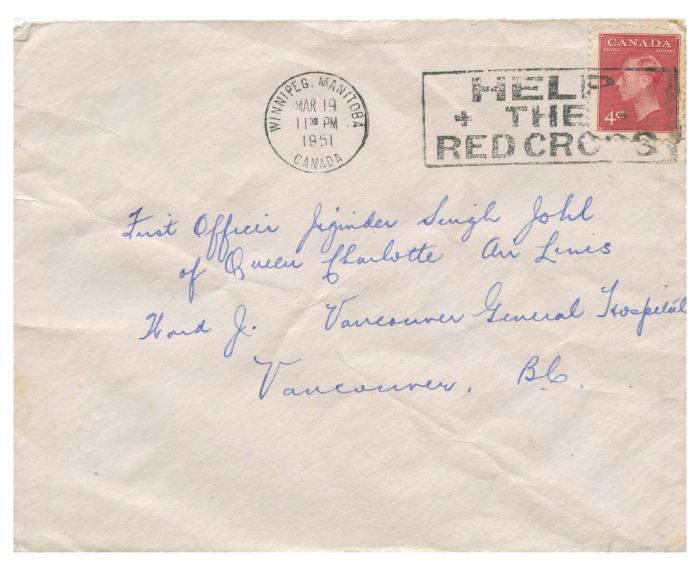 CANADA
4¢
WINNIPEG, MANITOBA
MAR 19
11 30 PM
1951
CANADA
HELP
+ THE
RED CROSS
First Officer Jiginder Singh Johl
of Queen Charlotte Air Lines
Ward J. Vancouver General Hospital
Vancouver, B.C.